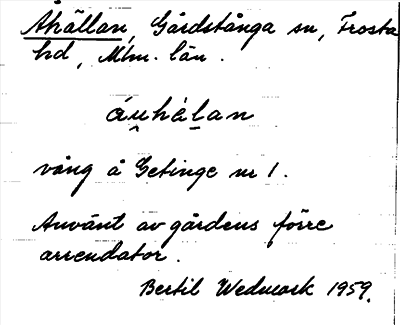 Åhällan, Gårdstånga sn, Frosta
hd, Mlm. län.
áu̯hàḻan
vång å Getinge nr 1.
Använt av gårdens förre
arrendator.
Bertil Wedmark 1959.